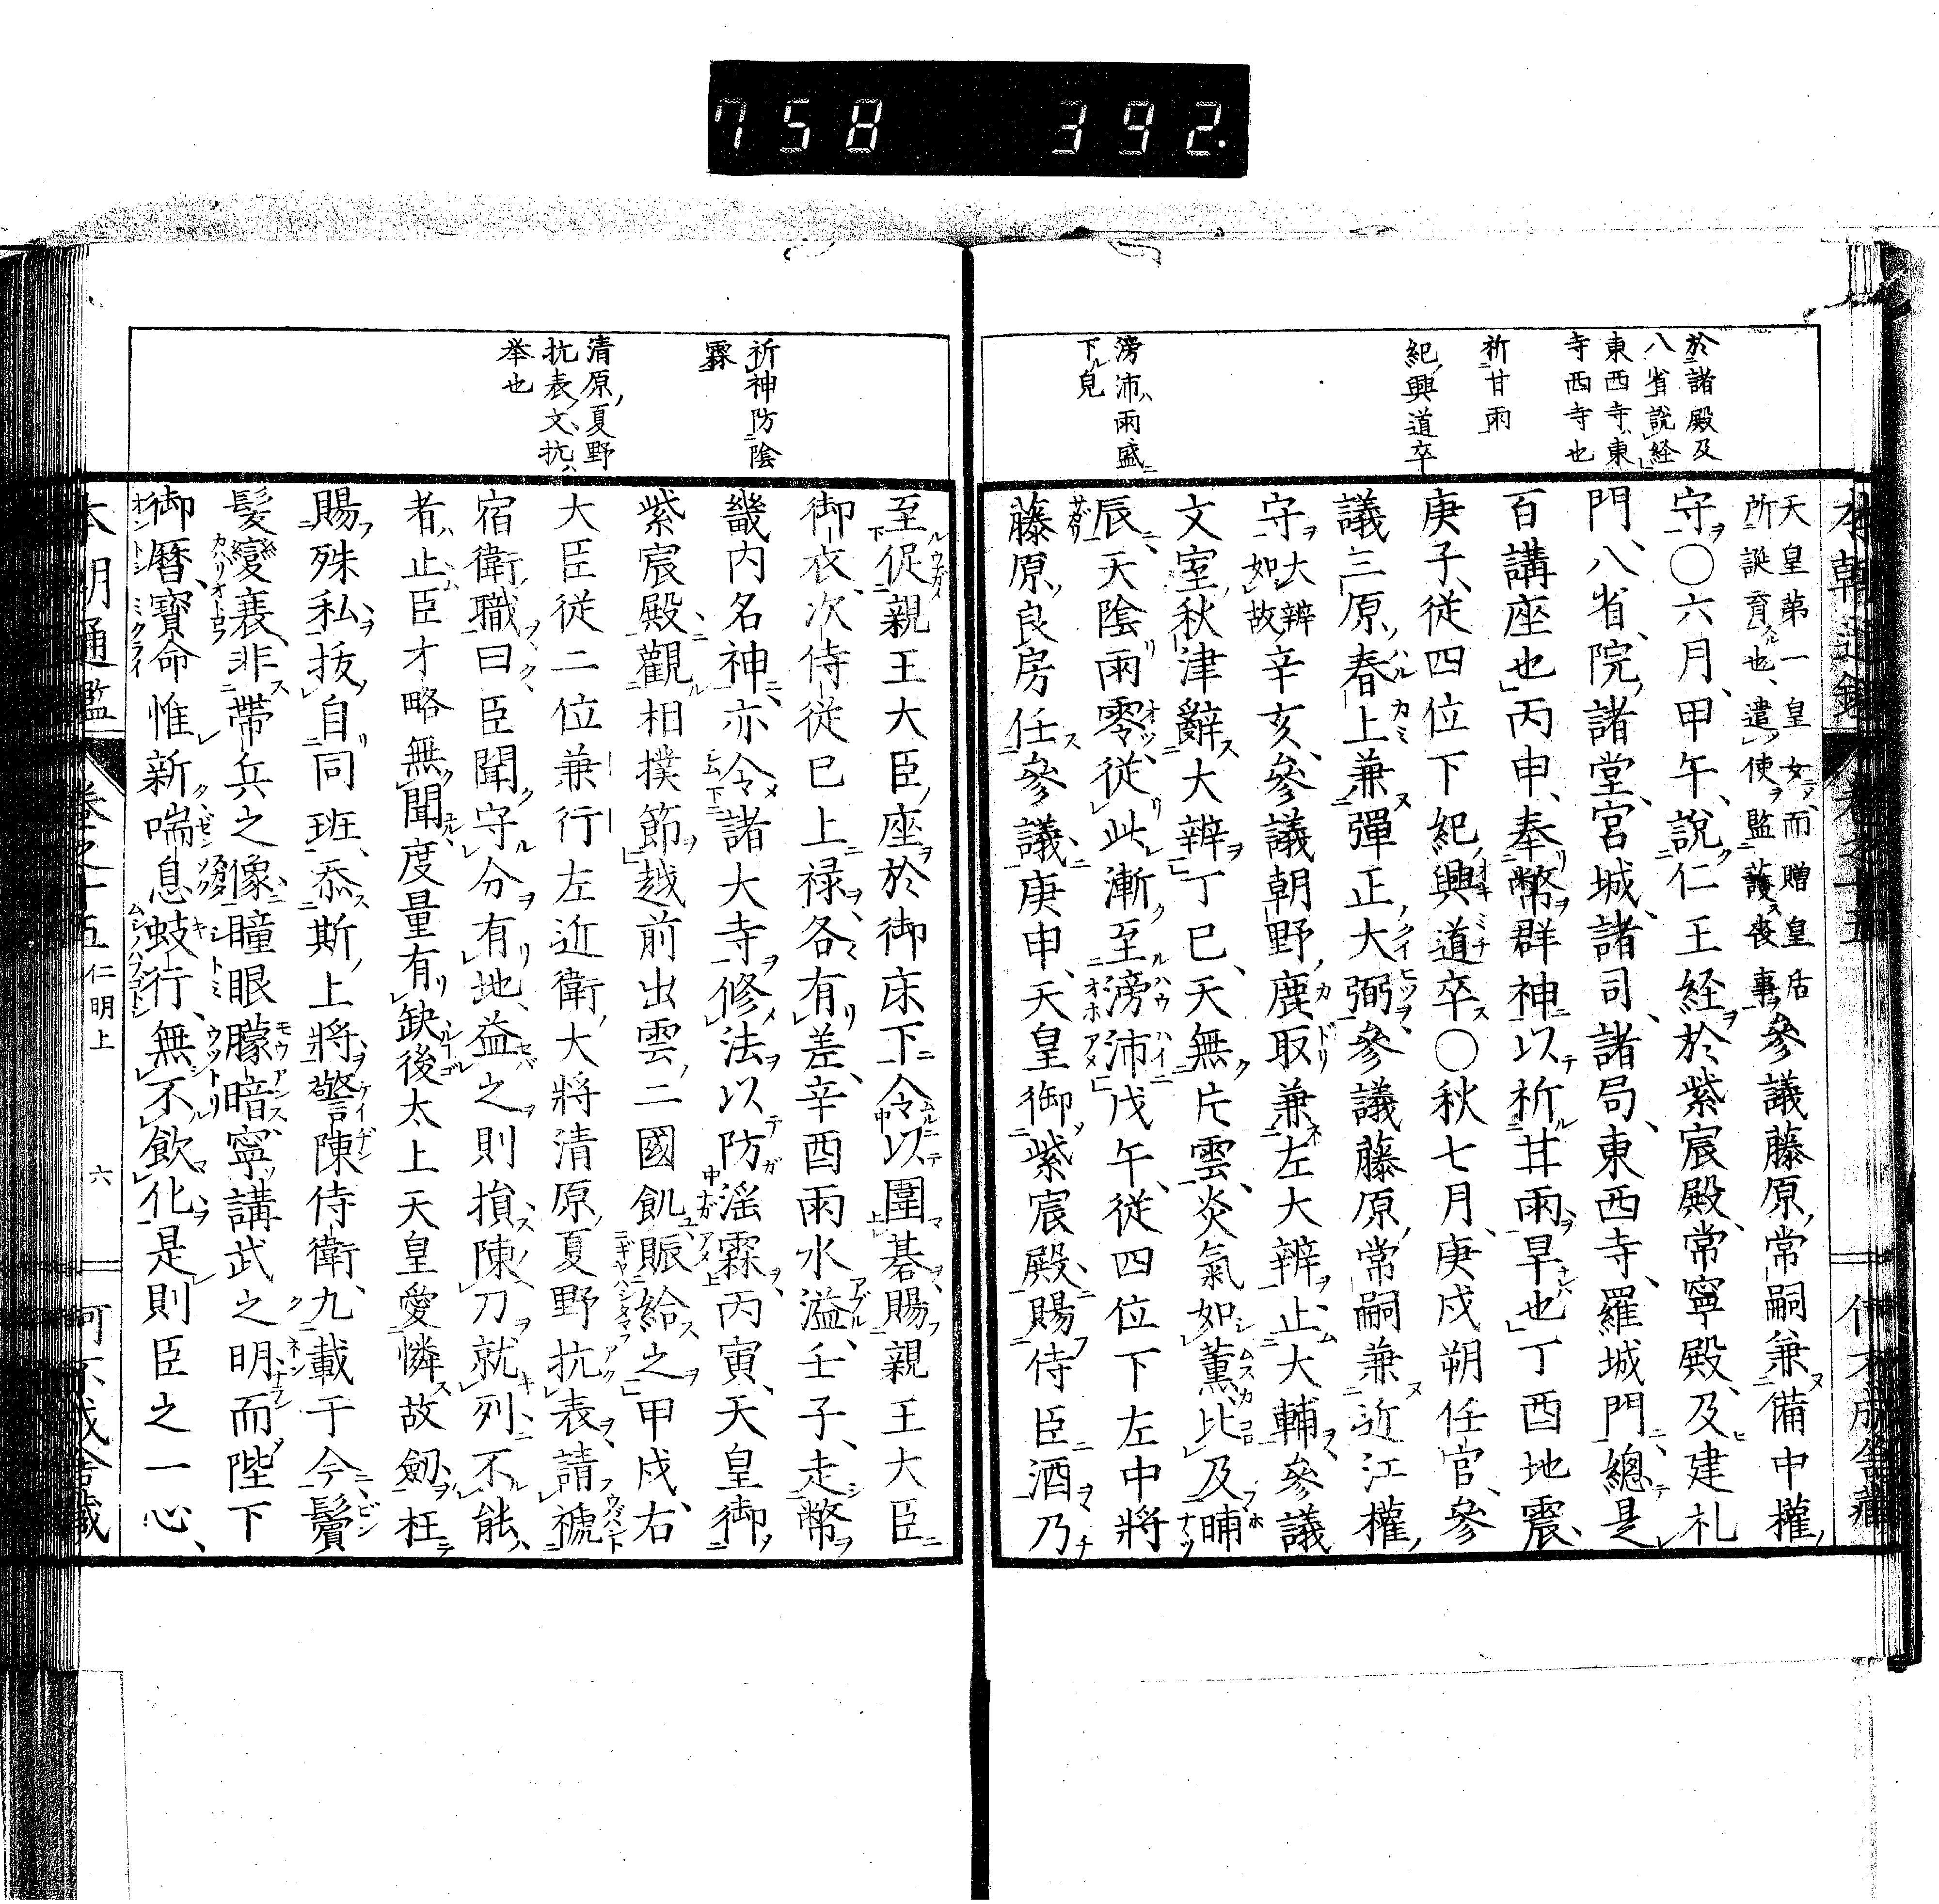 758 392.
於諸殿及
八省説経
東西寺東
寺西寺也
祈甘雨
紀興道卒
滂沛雨盛
下皃
天皇第一皇女而贈皇后
所誕育也遣使監護喪事
參議藤原常嗣兼備中權
守〇六月甲午説仁王経於紫宸殿常寧殿及建礼
門八省院諸堂宮城諸司諸局東西寺羅城門總是
百講座也丙申奉幣群神以祈甘雨旱也丁酉地震
庚子従四位下紀興道卒〇秋七月庚戌朔任官參
議三原春上兼彈正大弼參議藤原常嗣兼近江權
守大辨如故辛亥參議朝野鹿取兼左大辨止大輔參議
文室秋津辭大辨丁巳天無片雲炎氣如薰比及晡
辰天陰雨零従此漸至滂沛戊午従四位下左中將
藤原良房任參議庚申天皇御紫宸殿賜侍臣酒乃
祈神防陰
霖
清原夏野
抗表文抗
举也
至促親王大臣座於御床下令以圍碁賜親王大臣
御衣次侍従已上禄各有差辛酉雨水溢壬子走幣
畿内名神亦令諸大寺修法以防滛霖丙寅天皇御
紫宸殿觀相撲節越前出雲二國飢賑給之甲戌右
大臣従二位兼行左近衛大將清原夏野抗表請褫
宿衛職曰臣聞守分有地益之則損陳力就列不能
者止臣才略無聞度量有缺後太上天皇愛憐故劔枉
賜殊私抜自同班忝斯上將警陳侍衛九載于今鬢
髮變衰非帶兵之像瞳眼朦暗寧講武之明而陛下
御曆寶命惟新喘息蚑行無不飲化是則臣之一心
本朝通鑑 卷之十五 仁明上 六